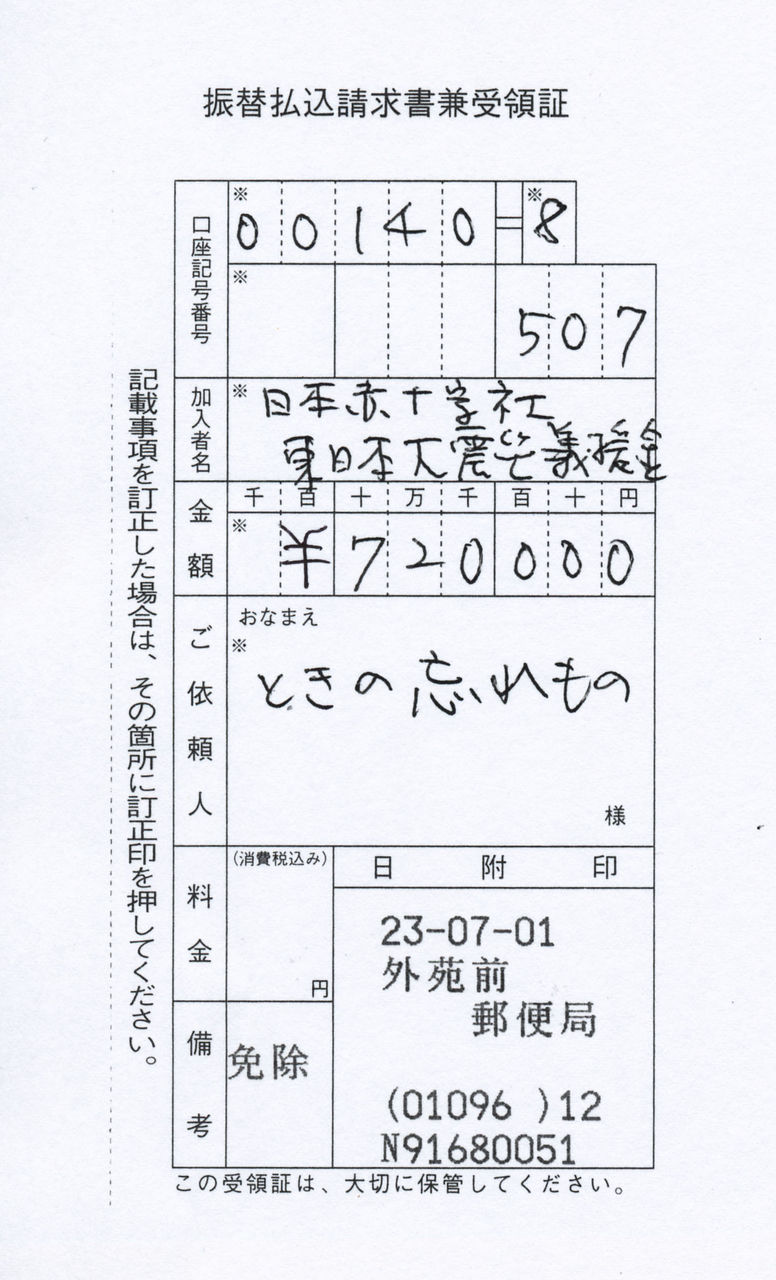 振替払込請求書兼受領証
口座記号番号
※ 0 0 1 4 0 - ※ 8
※ 5 0 7
加入者名
※ 日本赤十字社
東日本大震災義援金
金額
千 百 十 万 千 百 十 円
※ ¥ 7 2 0 0 0 0
ご依頼人
おなまえ
※
ときの忘れもの
様
料金
(消費税込み)
円
日附印
23-07-01
外苑前
郵便局
(01096 )12
N91680051
備考
免除
この受領証は、大切に保管してください。
記載事項を訂正した場合は、その箇所に訂正印を押してください。